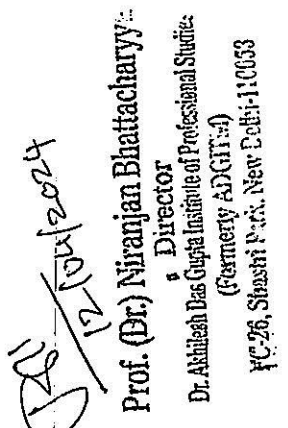 12/04/2024
Prof. (Dr.) Niranjan Bhattacharyy
Director
Dr. Akhilesh Das Gupta Institute of Professional Studies
(Formerly ADGITM)
FC-26, Shastri Park, New Delhi-110053